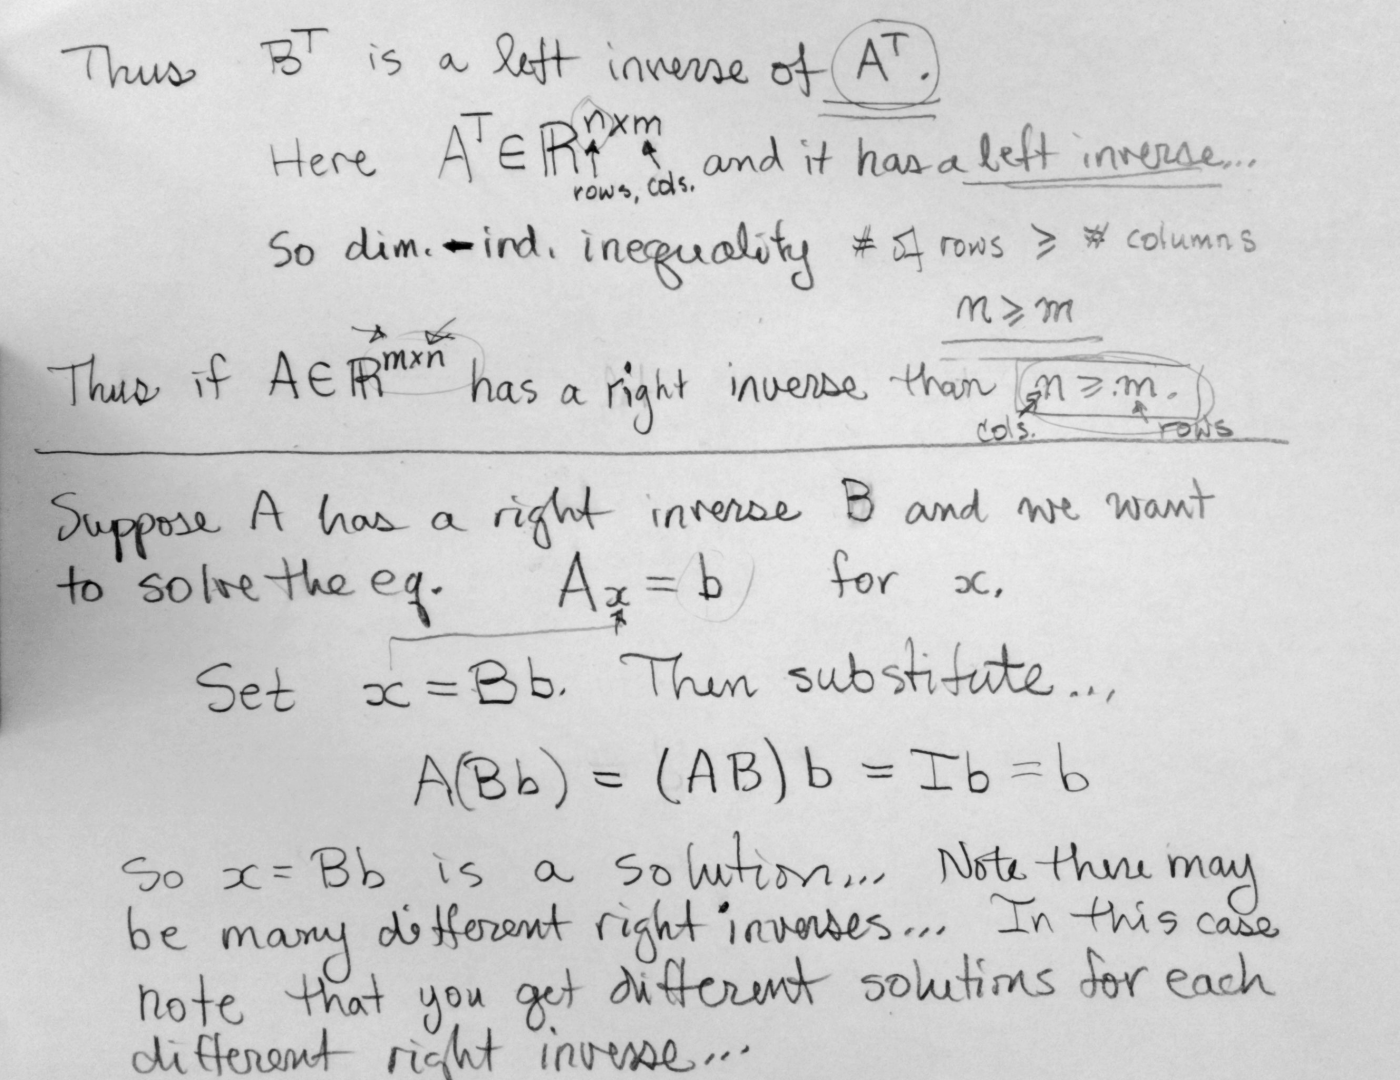 Thus Bᵀ is a left inverse of Aᵀ.
Here Aᵀ ∈ ℝⁿˣᵐ and it has a left inverse...
rows, cols.
So dim. - ind. inequality # of rows ⩾ # columns
n ⩾ m
Thus if A ∈ ℝᵐˣⁿ has a right inverse than n ⩾ m.
cols. rows
Suppose A has a right inverse B and we want
to solve the eq. Ax = b for x.
Set x = Bb. Then substitute...
A(Bb) = (AB)b = Ib = b
So x = Bb is a solution... Note there may
be many different right inverses... In this case
note that you get different solutions for each
different right inverse...